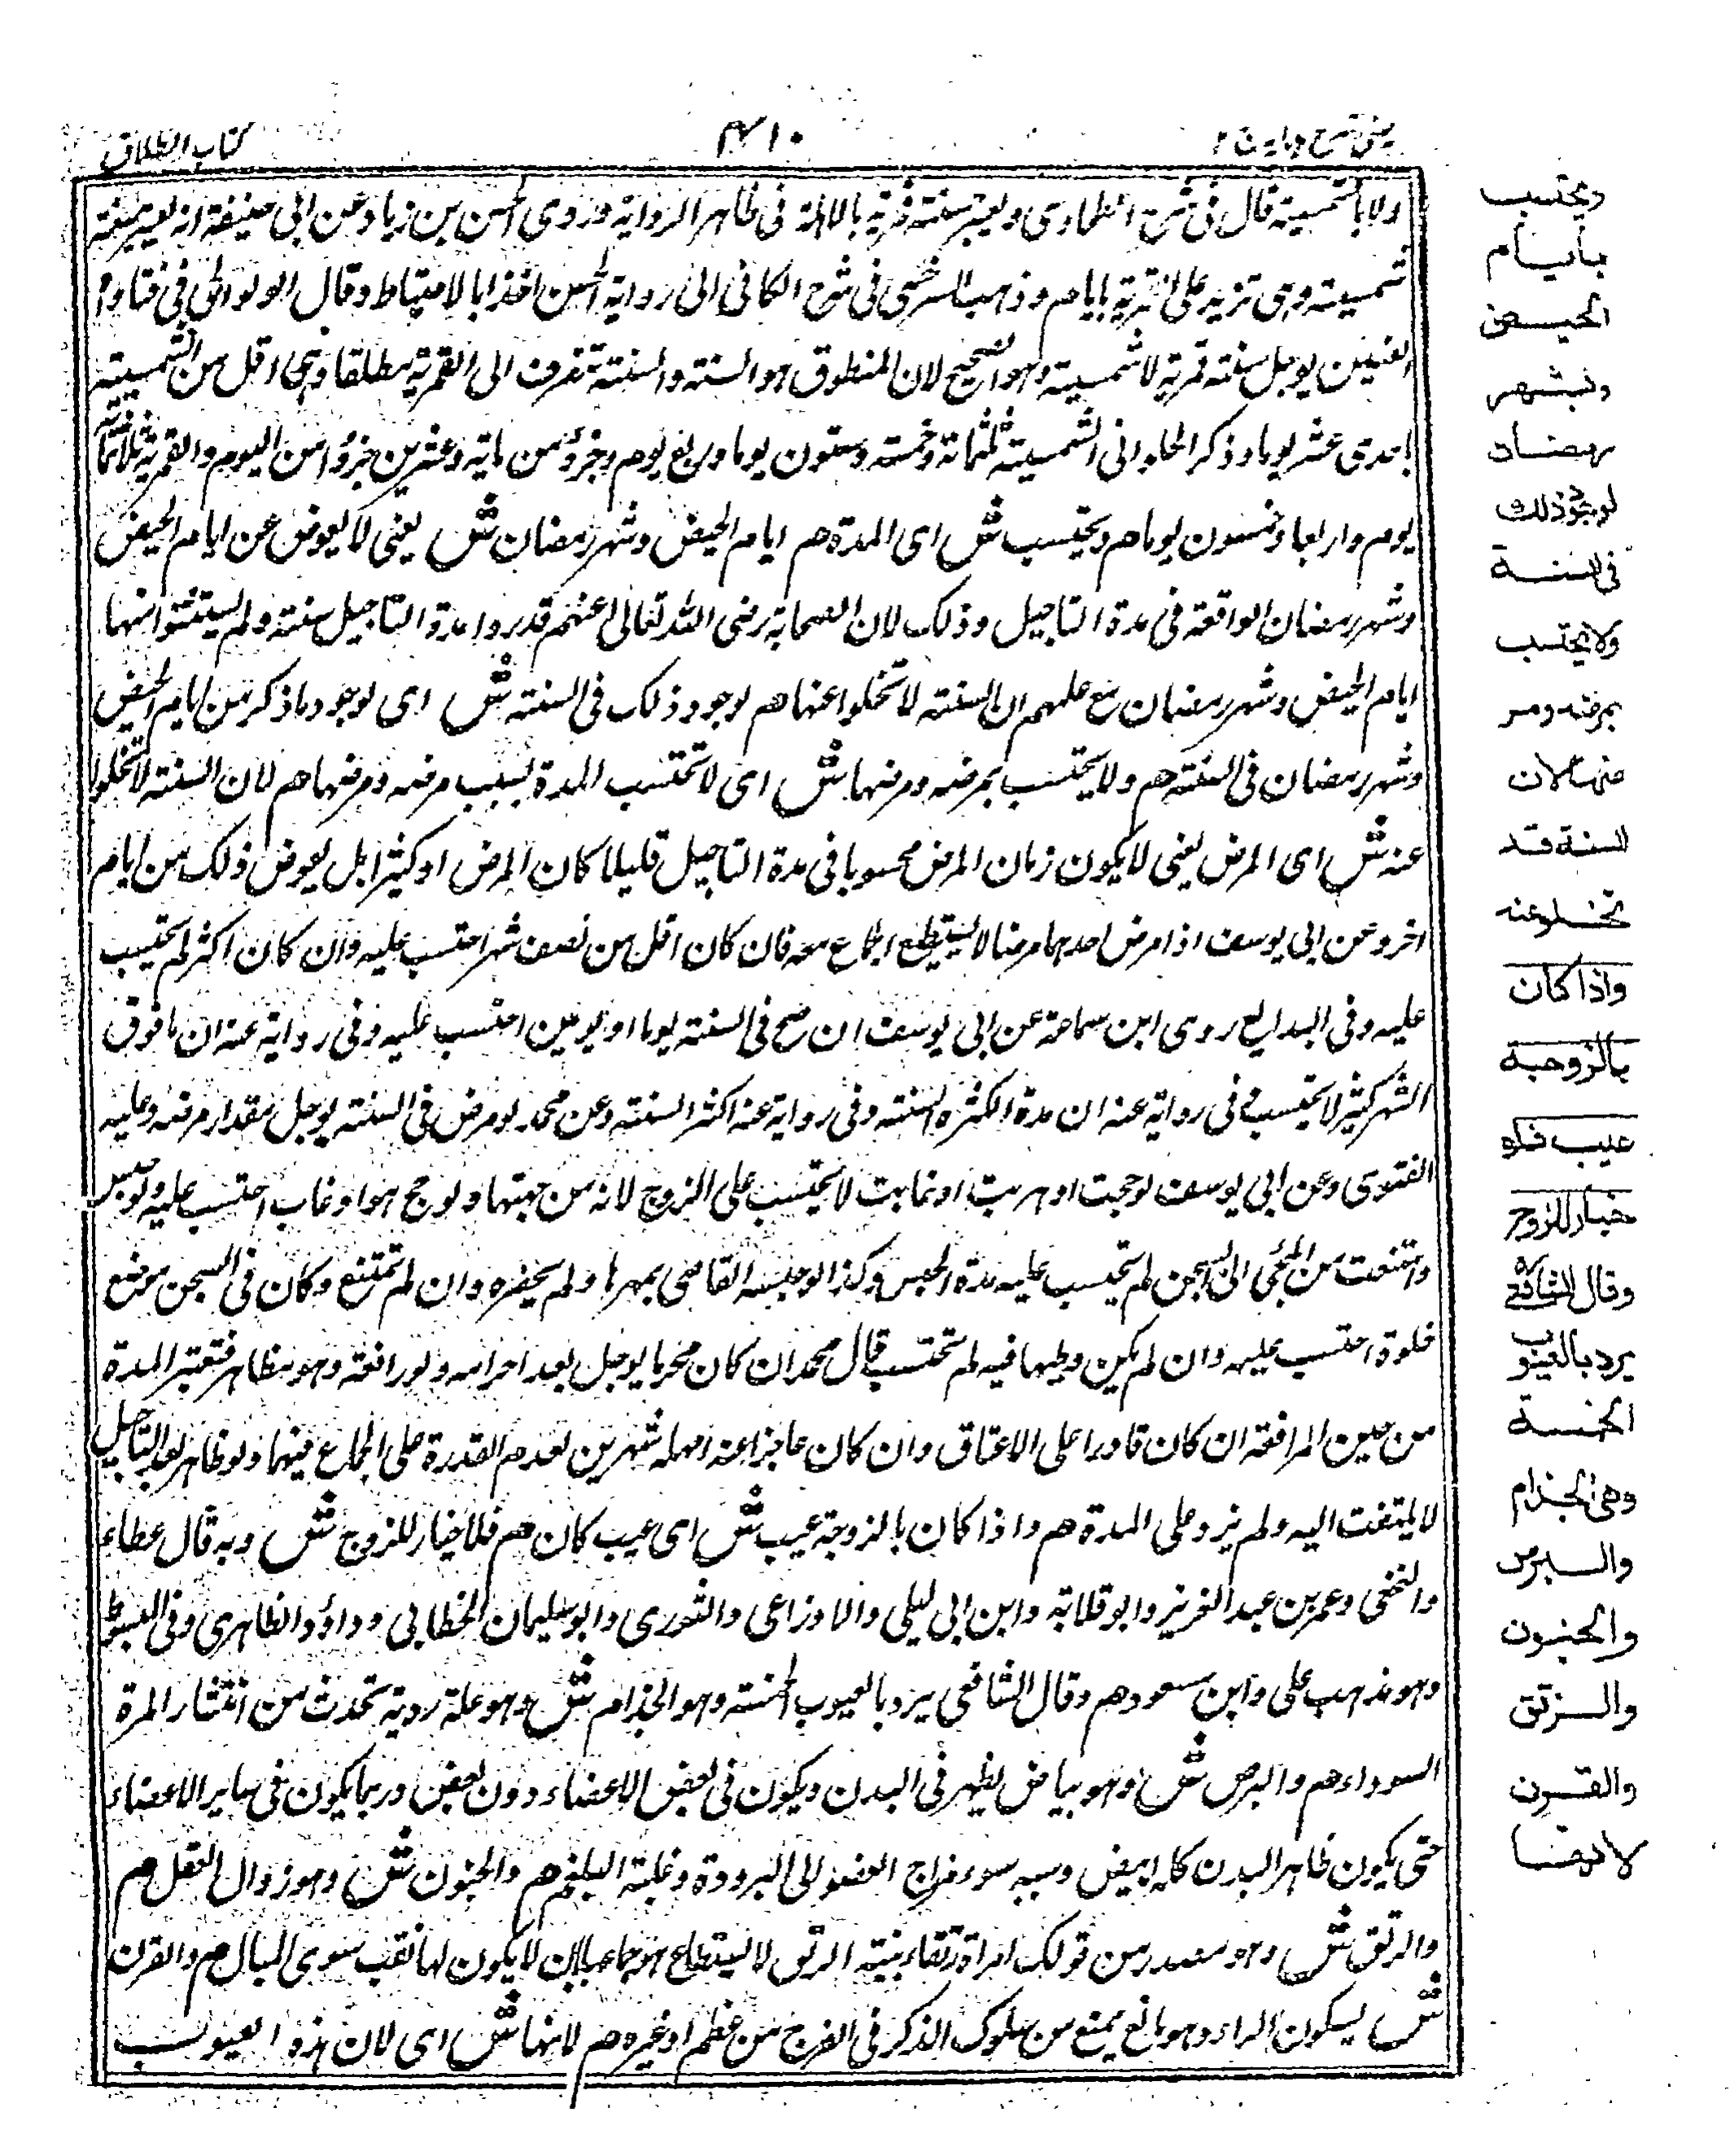 عینی شرح ہدایہ ج ۲
۴۱۰
کتاب الطلاق
ولا بالشمسیة قال فی شرح الطحاوی ویعتبر سنة قمریة بالاهلة فی ظاهر الروایة وروی الحسن بن زیاد عن ابی حنیفة انه یعتبر سنة
شمسیة وهی تزید علی القمریة بایام وذهب السرخسی فی شرح الکافی الی روایة الحسن اخذا بالاحتیاط وقال الولوالجی فی فتاواه
العنین یوجل سنة قمریة لا شمسیة وهو الصحیح لان المنطوق هو السنة والسنة تنصرف الی القمریة مطلقا وهی اقل من الشمسیة
باحدی عشر یوما وذکر الحلوانی الشمسیة ثلثمائة وخمسة وستون یوما وربع یوم وجزؤ من مایة وعشرین جزؤا من الیوم والقمریة ثلاثمائة
یوم واربعا وخمسون یوما هم ویحتسب ش ای المدة هم ایام الحیض وشهر رمضان ش یعنی لا یعوض عن ایام الحیض
وشهر رمضان الواقعة فی مدة التاجیل وذلک لان الصحابة رضی الله تعالی عنهم قدروا مدة التاجیل سنة ولم یستثنوا منها
ایام الحیض وشهر رمضان مع علمهم ان السنة لا تخلوا عنها هم لوجود ذلک فی السنة ش ای لوجود ما ذکر من ایام الحیض
وشهر رمضان فی السنة هم ولا یحتسب بمرضه ومرضها ش ای لا تحتسب المدة بسبب مرضه ومرضها هم لان السنة لا تخلوا
عنه ش ای المرض یعنی لا یکون زمان المرض محسوبا فی مدة التاجیل قلیلا کان المرض او کثیرا بل یعوض ذلک من ایام
اخر وعن ابی یوسف اذا مرض احدهما مرضا لا یستطیع الجماع معه فان کان اقل من نصف شهر احتسب علیه وان کان اکثر لم یحتسب
علیه وفی البدایع روی ابن سماعة عن ابی یوسف ان صح فی السنة یوما او یومین احتسب علیه وفی روایة عنه ان ما فوق
الشهر کثیر لا یحتسب وفی روایة عنه ان مدة الکثرة السنة وفی روایة عنه اکثر السنة وعن محمد لو مرض فی السنة یوجل مقدار مرضه وعلیه
الفتوی وعن ابی یوسف لو حجت او هربت او غابت لا یحتسب علی الزوج لانه من جهتها ولو حج هو او غاب احتسب علیه ولو حبس
وامتنعت من المجئی الی السجن لم تحتسب علیه مدة الحبس وکذا لو حبسه القاضی بمهرها ولم یحضره وان لم تمتنع وکان فی السجن موضع
خلوة احتسب علیه وان لم یکن وطیها فیه لم تحتسب قال محمد ان کان محرما یوجل بعد احرامه ولو رافعته وهو مظاهر فتعتبر المدة
من حین المرافعة ان کان قادرا علی الاعتاق وان کان عاجزا عنه امهله شهرین لعدم القدرة علی الجماع فیهما ولو ظاهر بعد التاجیل
لا یلتفت الیه ولم یزد علی المدة هم واذا کان بالزوجة عیب ش ای عیب کان هم فلا خیار للزوج ش وبه قال عطاء
والنخعی وعمر بن عبد العزیز وابو قلابة وابن ابی لیلی والاوزاعی والثوری وابو سلیمان الخطابی وداؤد الظاهری وفی المبسوط
وهو مذهب علی وابن مسعود هم وقال الشافعی یرد بالعیوب الخمسة وهو الجذام ش وهو علة ردیة تحدث من انتشار المرة
السوداء هم والبرص ش وهو بیاض یظهر فی البدن ویکون فی بعض الاعضاء دون بعض وربما یکون فی سایر الاعضاء
حتی یکون ظاهر البدن کله ابیض وسببه سوء مزاج العضو الی البرودة وغلبة البلغم هم والجنون ش وهو زوال العقل هم
والرتق ش وهو مصدر من قولک امراة رتقاء بینة الرتق لا یستطاع جماعها بان لا یکون لها نقب سوی المبال هم والقرن
ش بسکون الراء وهو مانع یمنع من سلوک الذکر فی الفرج من عظم او غیره هم لانها ش ای لان هذه العیوب
ویحتسب
بایام
الحیض
وبشهر
رمضان
لوجود ذلك
فی السنة
ولا یحتسب
بمرضه ومر
ضها لان
السنة قد
تخلو عنه
واذا کان
بالزوجة
عیب فلا
خیار للزوج
وقال الشافعی
یرد بالعیوب
الخمسة
وهی الجذام
والبرص
والجنون
والرتق
والقرن
لانها